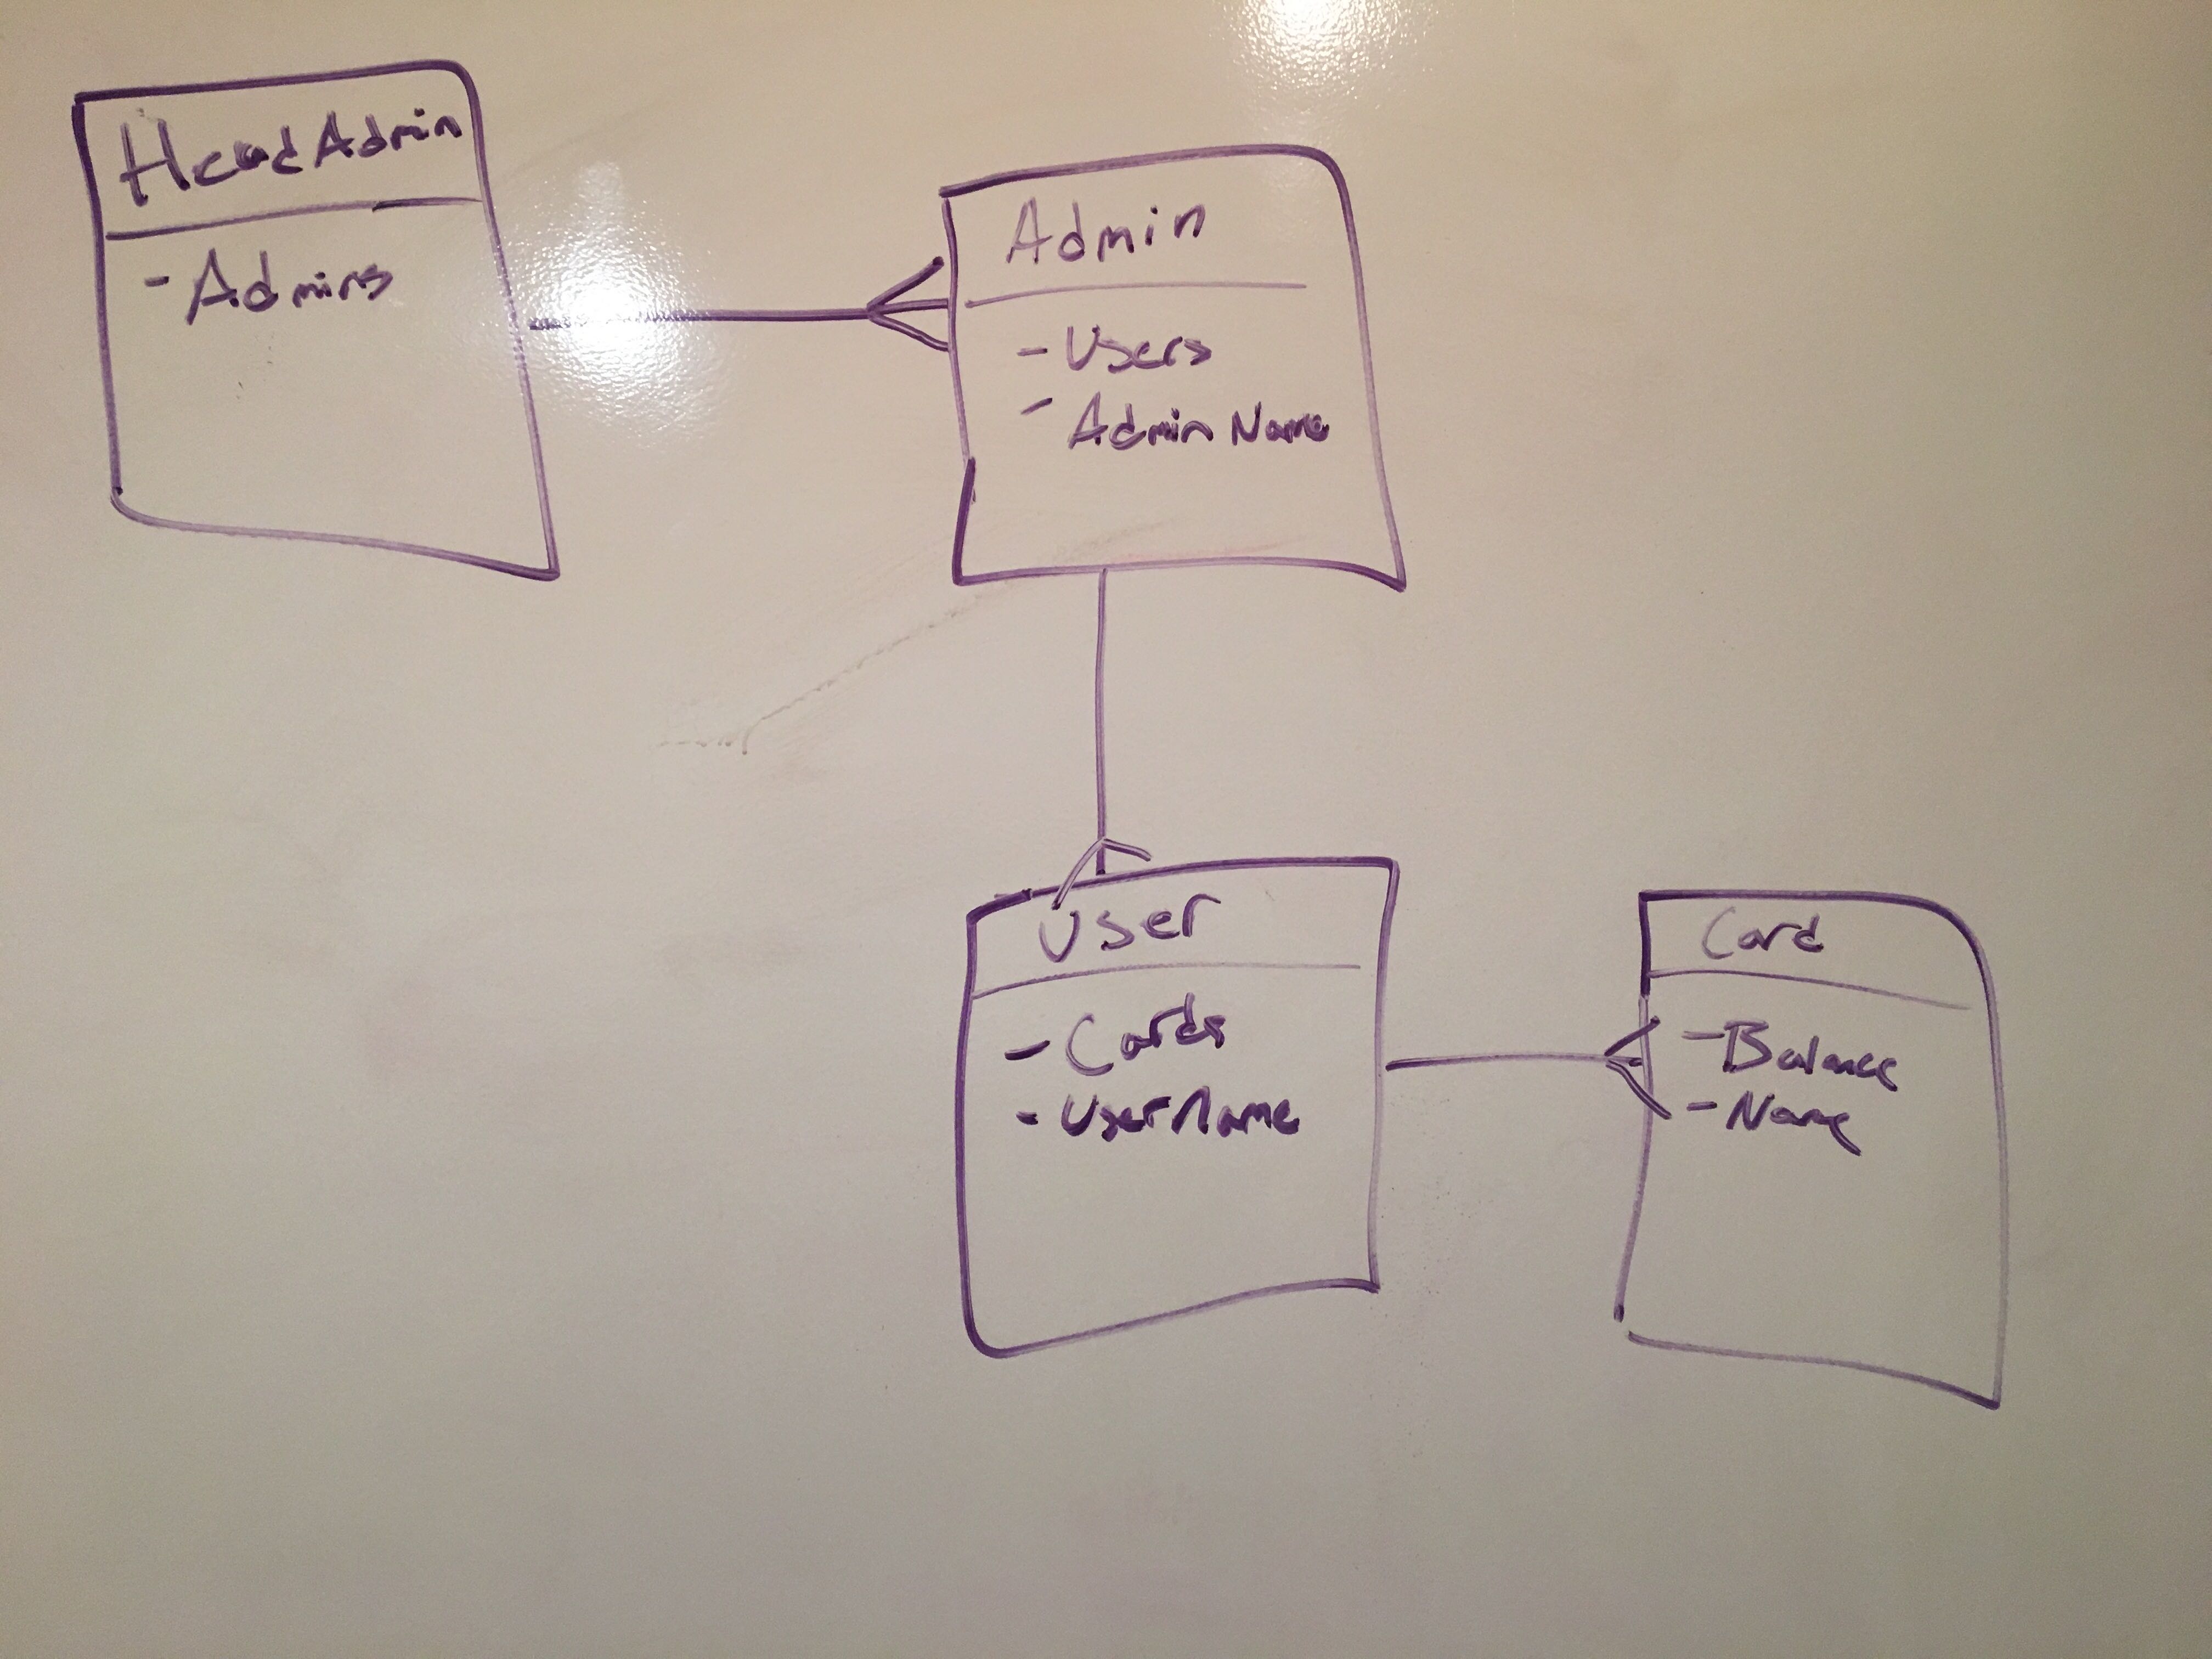 HeadAdmin
- Admins
Admin
- Users
- Admin Name
User
- Cards
- UserName
Card
- Balance
- Name